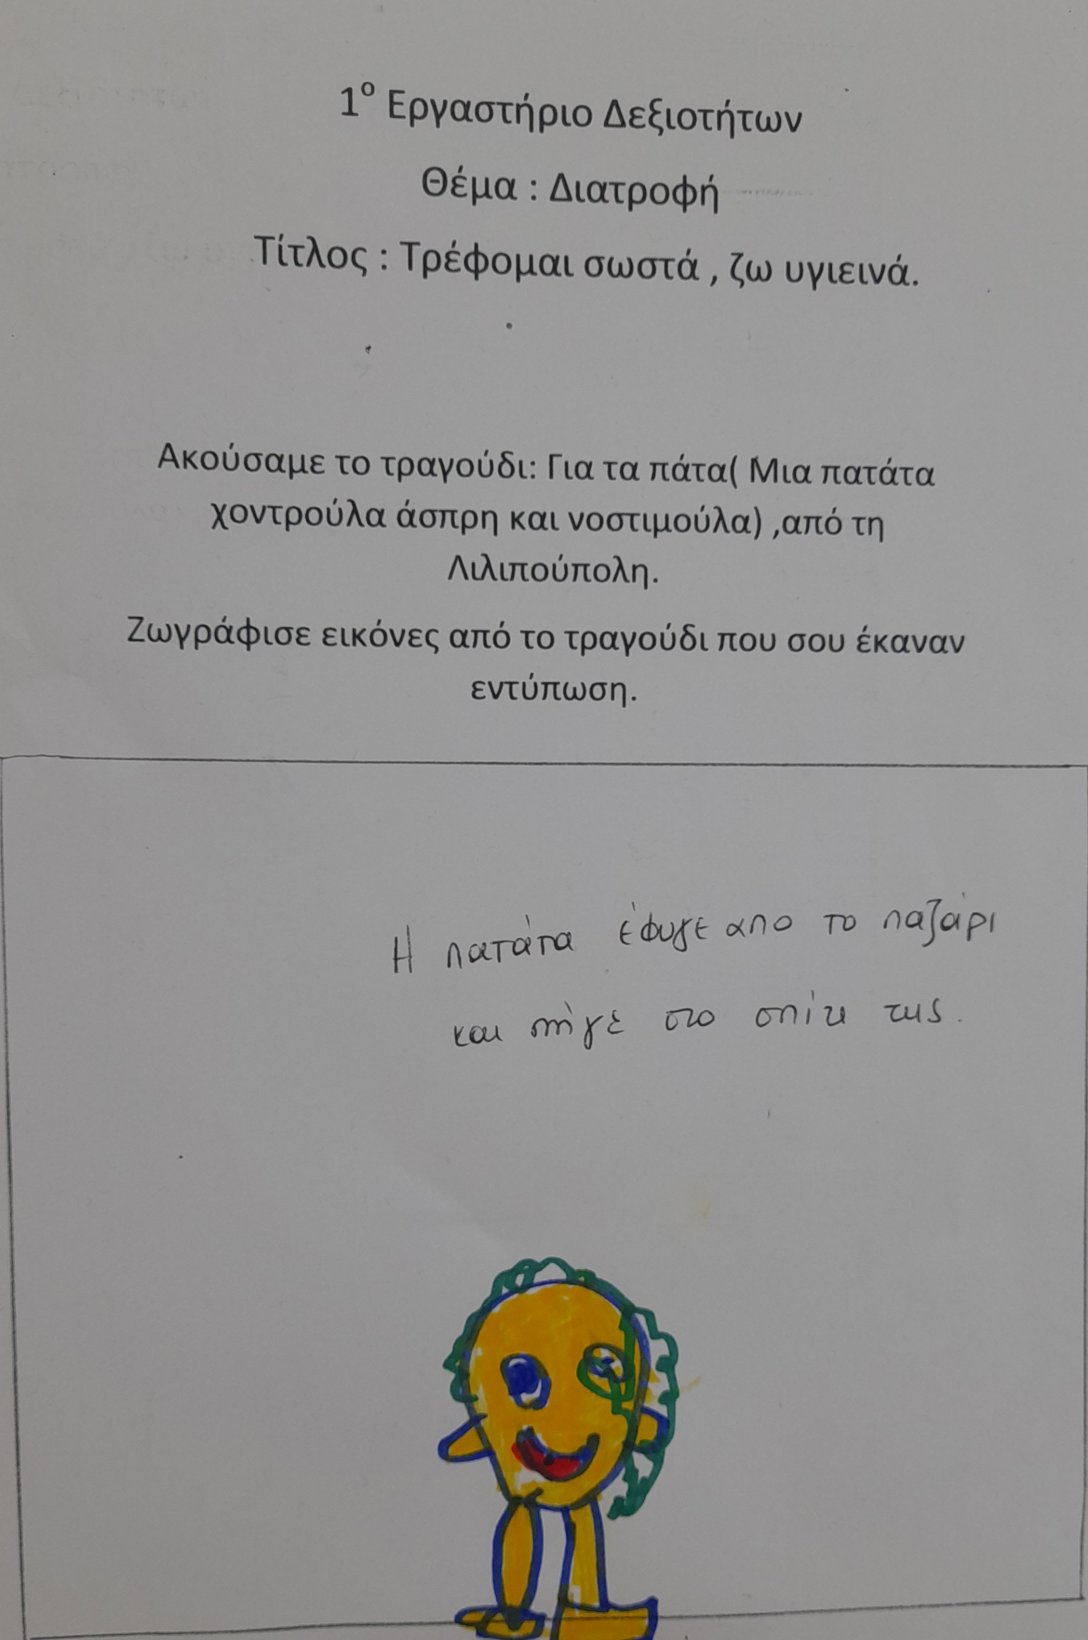 1ο Εργαστήριο Δεξιοτήτων
Θέμα : Διατροφή
Τίτλος : Τρέφομαι σωστά , ζω υγιεινά.
Ακούσαμε το τραγούδι: Για τα πάτα( Μια πατάτα
χοντρούλα άσπρη και νοστιμούλα) ,από τη
Λιλιπούπολη.
Ζωγράφισε εικόνες από το τραγούδι που σου έκαναν
εντύπωση.
Η πατάτα έφυγε απο το παζάρι
και πήγε στο σπίτι της.